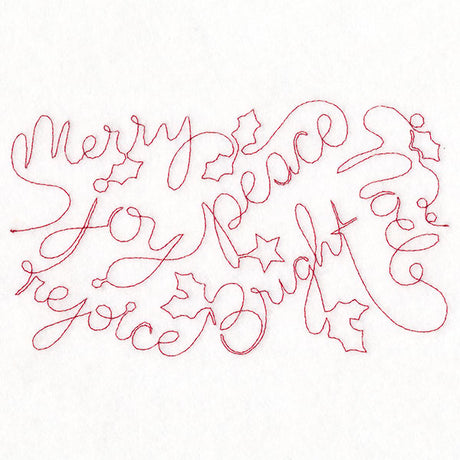 Merry
peace
joy
Bright
rejoice